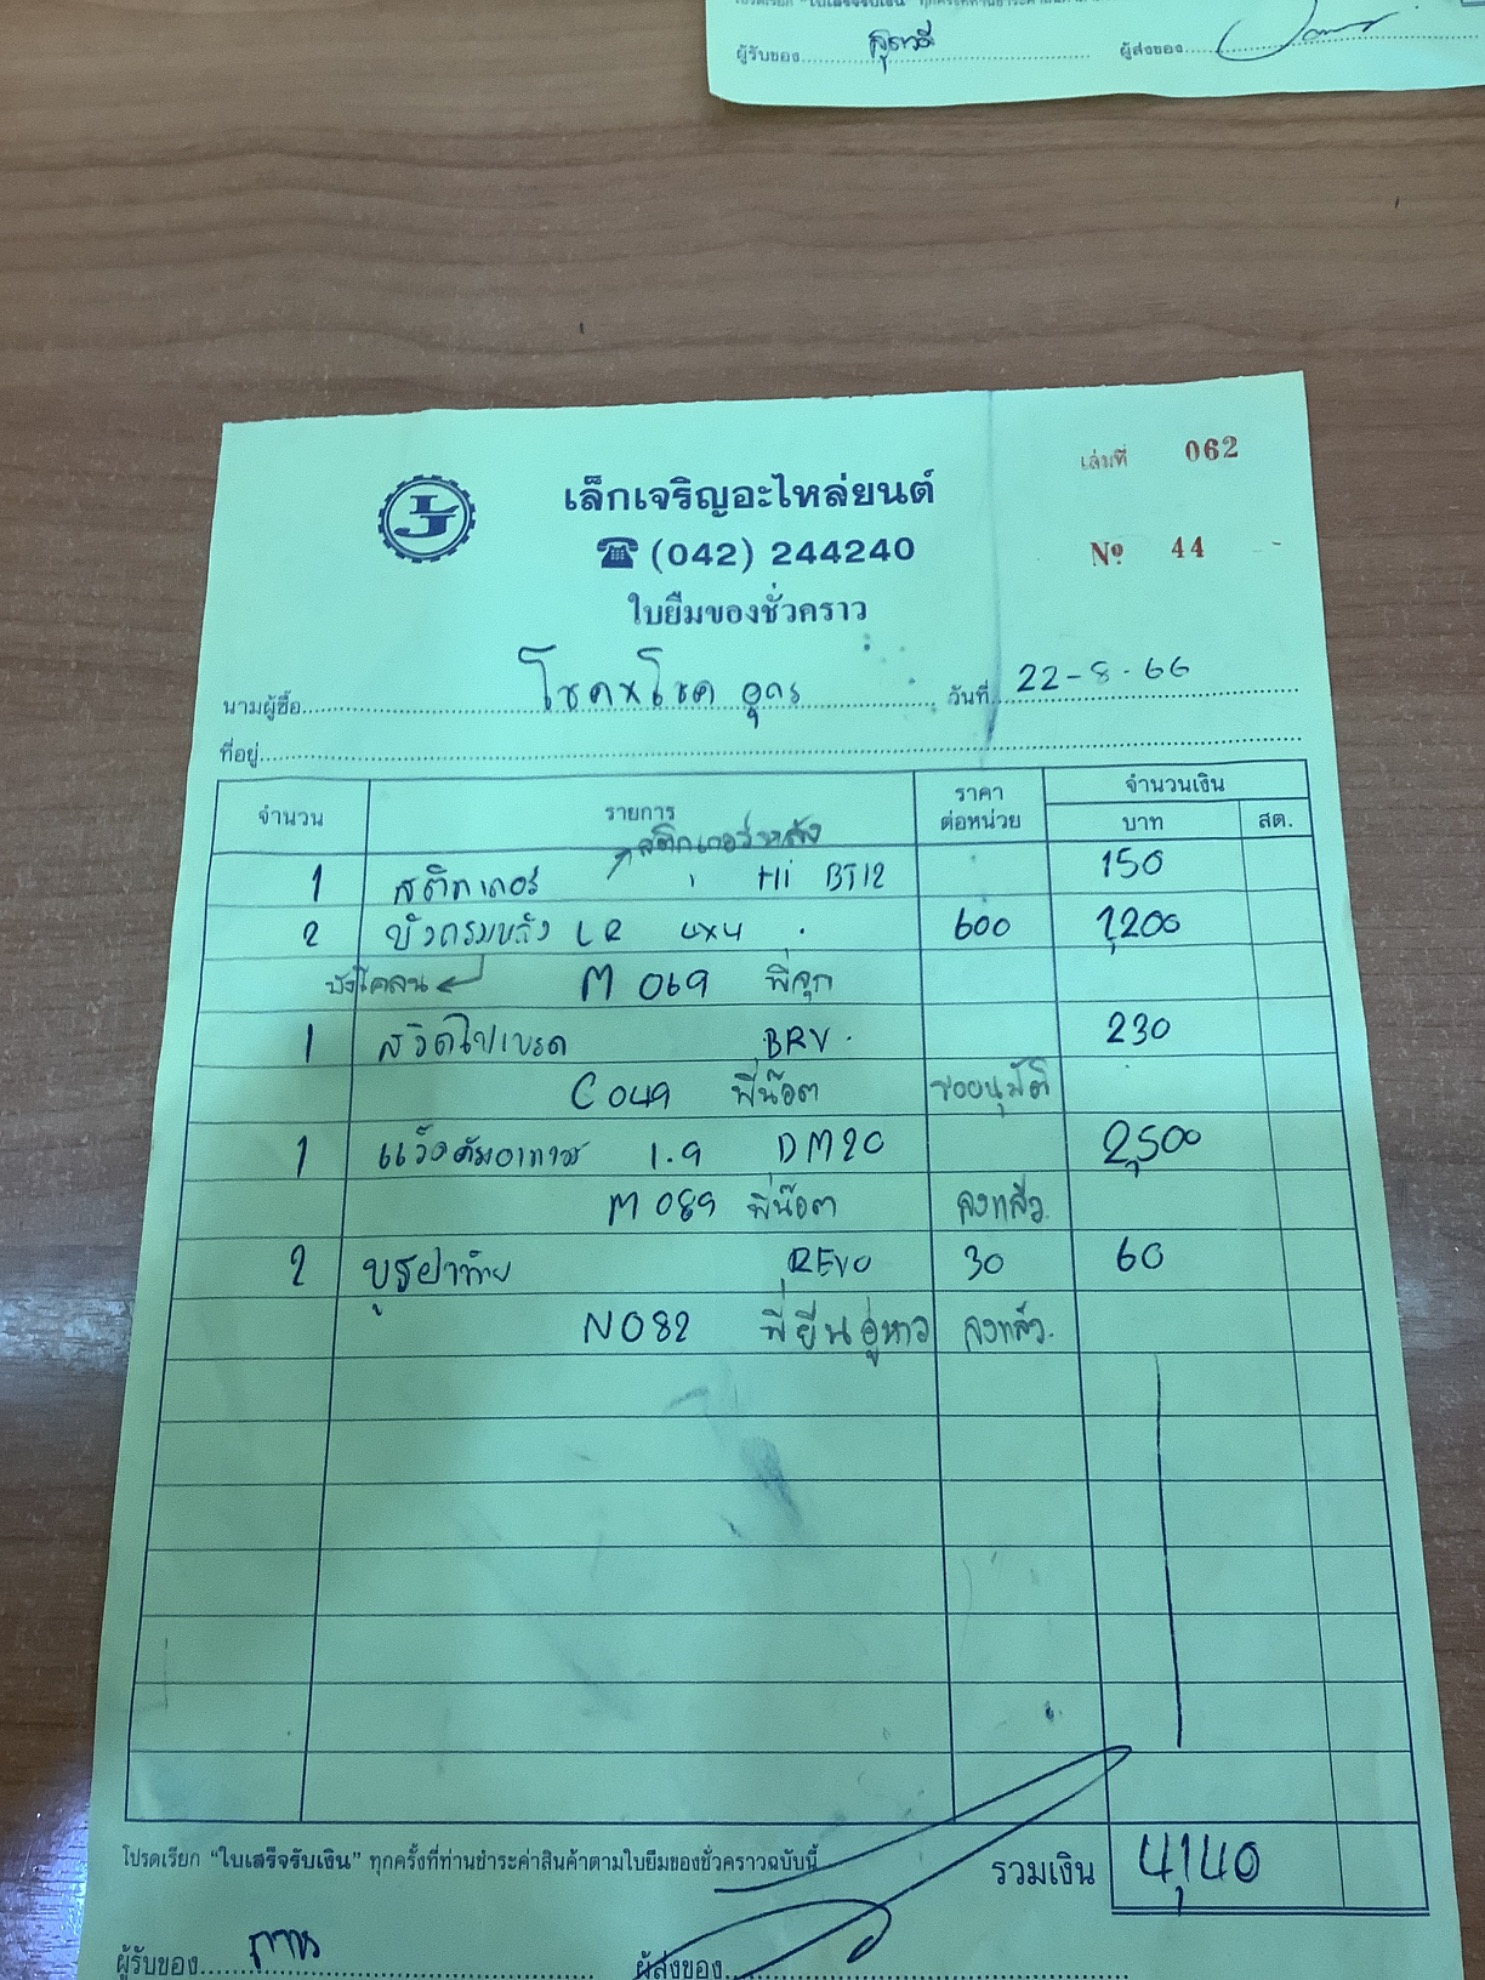 ผู้รับของ สุภาวดี ผู้ส่งของ
เล่มที่ 062
LJ เล็กเจริญอะไหล่ยนต์
(042) 244240
Nº 44
ใบยืมของชั่วคราว
นามผู้ซื้อ โชค x โชค อุดร วันที่ 22-8-66
ที่อยู่
จำนวน รายการ ราคาต่อหน่วย จำนวนเงิน
บาท สต.
สติกเกอร์หลัง
1 สติกเกอร์ Hi BT12 150
2 บังกรมหลัง LR 4x4 600 1,200
บังโคลน M 069 พี่จุก
1 สวิตไฟเบรค BRV 230
C 049 พี่น๊อต ขออนุมัติ
1 แว็คคัมอากาศ 1.9 DM20 2,500
M 089 พี่น๊อต ลงแล้ว
2 บูธฝาท้าย REVO 30 60
N 082 พี่ยีนอู่หาว ลงแล้ว
โปรดเรียก “ใบเสร็จรับเงิน” ทุกครั้งที่ท่านชำระค่าสินค้าตามใบยืมของชั่วคราวฉบับนี้ รวมเงิน 4,140
ผู้รับของ ผู้ส่งของ